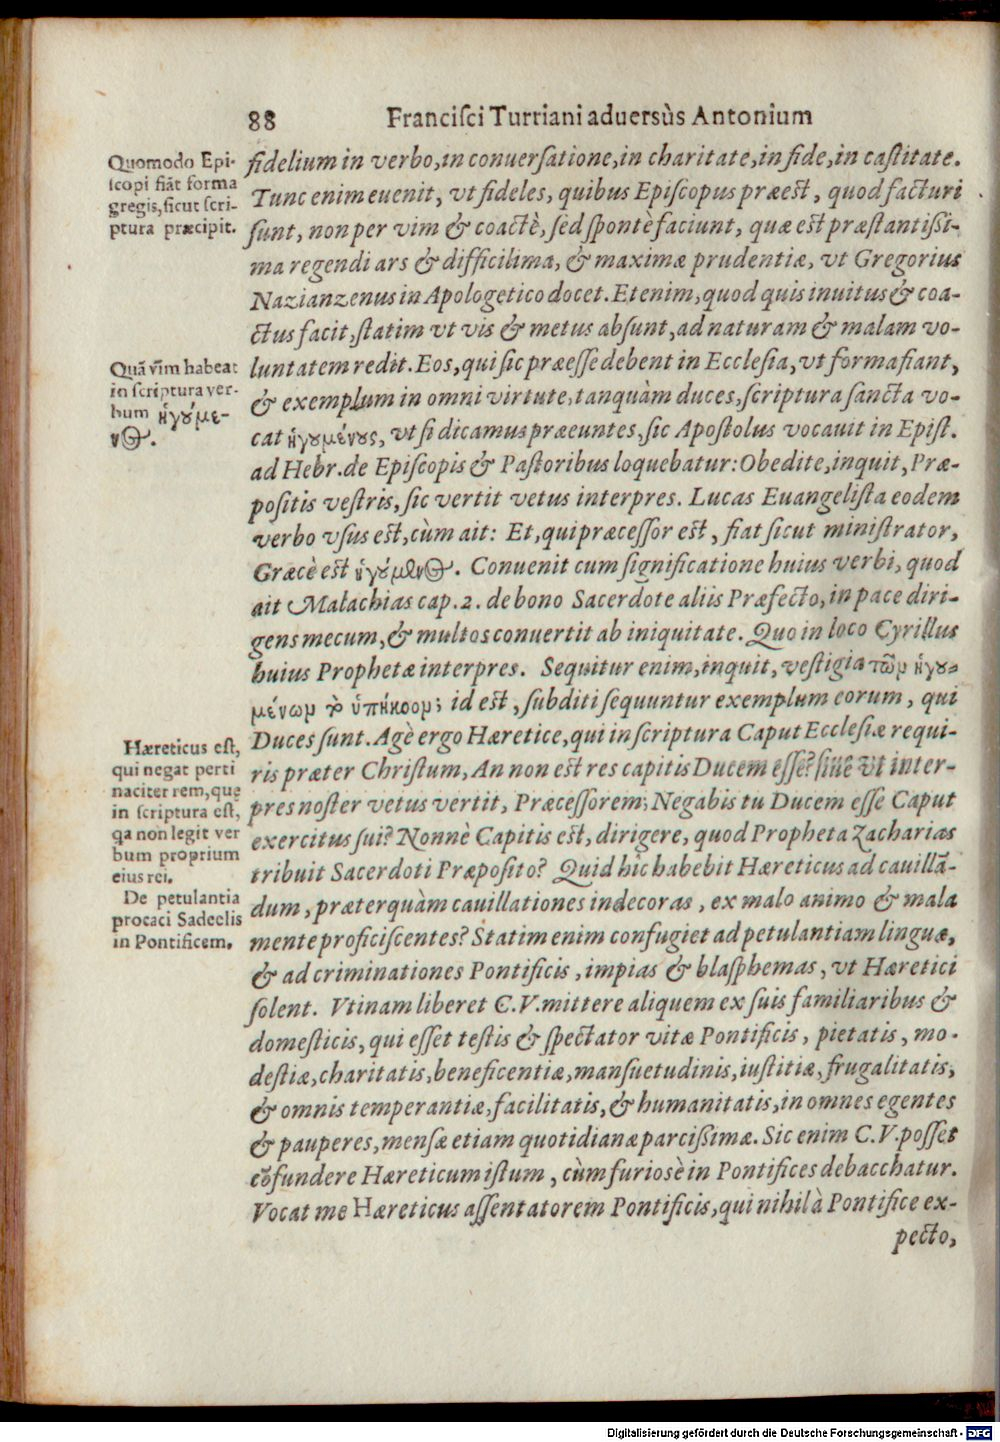 88 Franciſci Turriani aduersùs Antonium
Quomodo Epi-
ſcopi fiāt forma
gregis, ſicut ſcri-
ptura præcipit.
fidelium in verbo, in conuerſatione, in charitate, in fide, in caſtitate.
Tunc enim euenit, vt fideles, quibus Epiſcopus præest, quod facturi
ſunt, non per vim & coactè, ſed ſpontè faciunt, quæ est præſtantißi-
ma regendi ars & difficilima, & maximæ prudentiæ, vt Gregorius
Nazianzenus in Apologetico docet. Etenim, quod quis inuitus & coa-
ctus facit, ſtatim vt vis & metus abſunt, ad naturam & malam vo-
luntatem redit. Eos, qui ſic præeſſe debent in Eccleſia, vt forma fiant,
& exemplum in omni virtute, tanquàm duces, ſcriptura ſancta vo-
cat ἡγουμένους, vt ſi dicamus præeuntes, ſic Apoſtolus vocauit in Epiſt.
ad Hebr. de Epiſcopis & Paſtoribus loquebatur: Obedite, inquit, Præ-
poſitis veſtris, ſic vertit vetus interpres. Lucas Euangeliſta eodem
verbo vſus est, cùm ait: Et, qui præceſſor est, fiat ſicut miniſtrator,
Græcè est ἡγούμενος. Conuenit cum ſignificatione huius verbi, quod
ait Malachias cap. 2. de bono Sacerdote aliis Præfecto, in pace diri-
gens mecum, & multos conuertit ab iniquitate. Quo in loco Cyrillus
huius Prophetæ interpres. Sequitur enim, inquit, veſtigia τῶν ἡγου-
μένων τὸ ὑπήκοον; id est, ſubditi ſequuntur exemplum eorum, qui
Duces ſunt. Agè ergo Hæretice, qui in ſcriptura Caput Eccleſiæ requi-
ris præter Chriſtum, An non est res capitis Ducem eſſe? ſiue vt inter-
pres noſter vetus vertit, Præceſſorem; Negabis tu Ducem eſſe Caput
exercitus ſui? Nonnè Capitis est, dirigere, quod Propheta Zacharias
tribuit Sacerdoti Præpoſito? Quid hìc habebit Hæreticus ad cauillā-
dum, præterquàm cauillationes indecoras, ex malo animo & mala
mente proficiſcentes? Statim enim confugiet ad petulantiam linguæ,
& ad criminationes Pontificis, impias & blaſphemas, vt Hæretici
ſolent. Vtinam liberet C.V. mittere aliquem ex ſuis familiaribus &
domeſticis, qui eſſet teſtis & ſpectator vitæ Pontificis, pietatis, mo-
deſtiæ, charitatis, beneficentiæ, manſuetudinis, iuſtitiæ, frugalitatis,
& omnis temperantiæ, facilitatis, & humanitatis, in omnes egentes
& pauperes, menſæ etiam quotidianæ parcißimæ. Sic enim C.V. poſſet
cōfundere Hæreticum iſtum, cùm furiosè in Pontifices debacchatur.
Vocat me Hæreticus aſſentatorem Pontificis, qui nihil à Pontifice ex-
pecto,
Quā vim habeat
in ſcriptura ver-
bum ἡγούμε-
νος.
Hæreticus eſt,
qui negat perti
naciter rem, quę
in ſcriptura eſt,
qa non legit ver
bum proprium
eius rei.
De petulantia
procaci Sadeelis
in Pontificem.
Digitalisierung gefördert durch die Deutsche Forschungsgemeinschaft - DFG